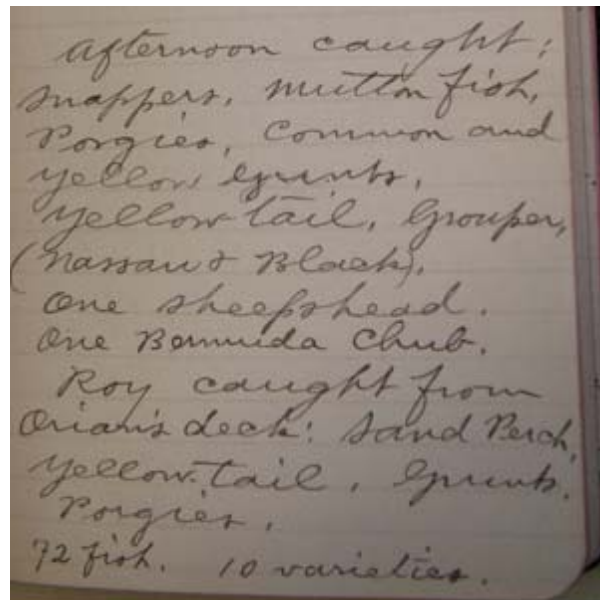 afternoon caught:
snappers, mutton fish,
Porgies, Common and
yellow grunts,
yellow tail, Grouper,
(Nassau & Black),
One sheepshead.
One Bermuda Chub.
Roy caught from
Orian's deck: Sand Perch,
yellow-tail, Grunts.
Porgies,
72 fish. 10 varieties.